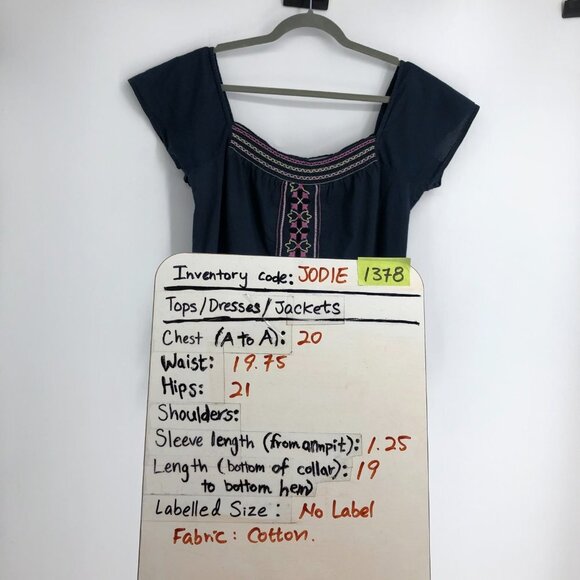 Inventory code: JODIE 1378
Tops/Dresses/Jackets
Chest (A to A): 20
Waist: 19.75
Hips: 21
Shoulders:
Sleeve length (from armpit): 1.25
Length (bottom of collar): 19
to bottom hem)
Labelled Size: No Label
Fabric: Cotton.